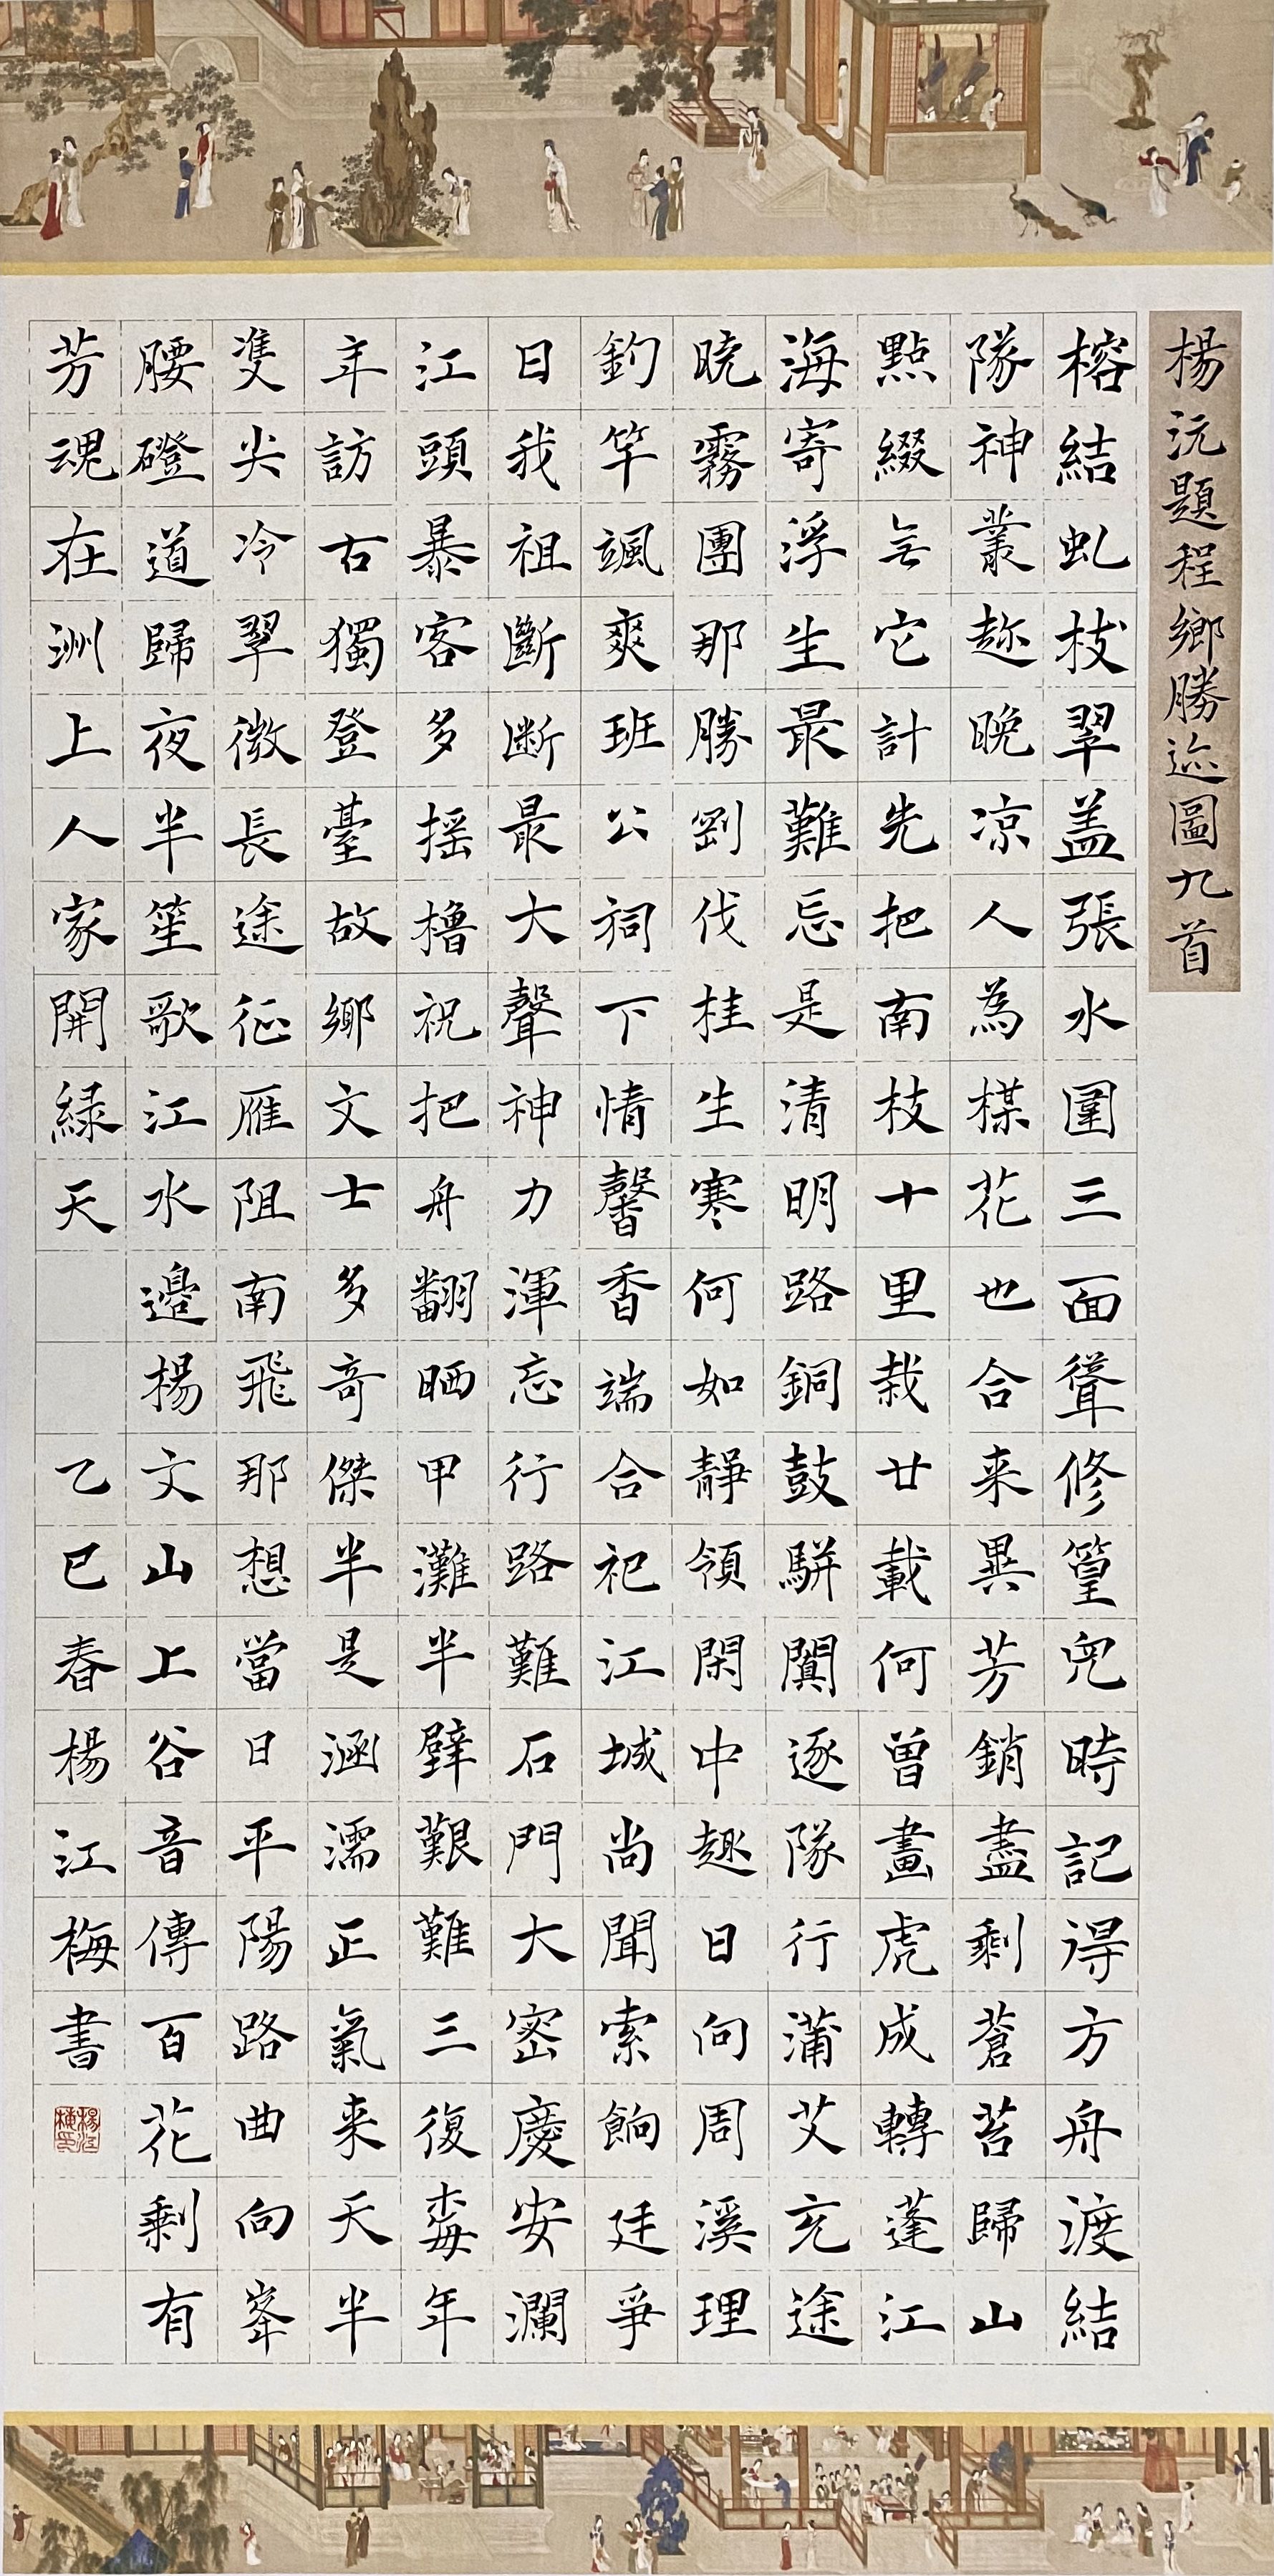 楊沅題程鄉勝迹圖九首
榕結虬枝翠盖張水圍三面聳修篁兒時記得方舟渡結
隊神叢趂晚凉人為楳花也合来異芳銷盡剩蒼苔歸山
點綴無它計先把南枝十里栽廿載何曾畫虎成轉蓬江
海寄浮生最難忘是清明路銅鼓駢闐逐隊行蒲艾充途
曉霧團那勝劉伐桂生寒何如靜領閑中趣日向周溪理
釣竿颯爽班公祠下情馨香端合祀江城尚聞索餉廷爭
日我祖斷斷最大聲神力渾忘行路難石門大密慶安瀾
江頭暴客多摇櫓祝把舟翻晒甲灘半壁艱難三復毒年
年訪古獨登臺故鄉文士多奇傑半是涵濡正氣来天半
雙尖冷翠微長途征雁阻南飛那想當日平陽路曲向峯
腰磴道歸夜半笙歌江水邊楊文山上谷音傳百花剩有
芳魂在洲上人家開緑天
乙巳春楊江梅書